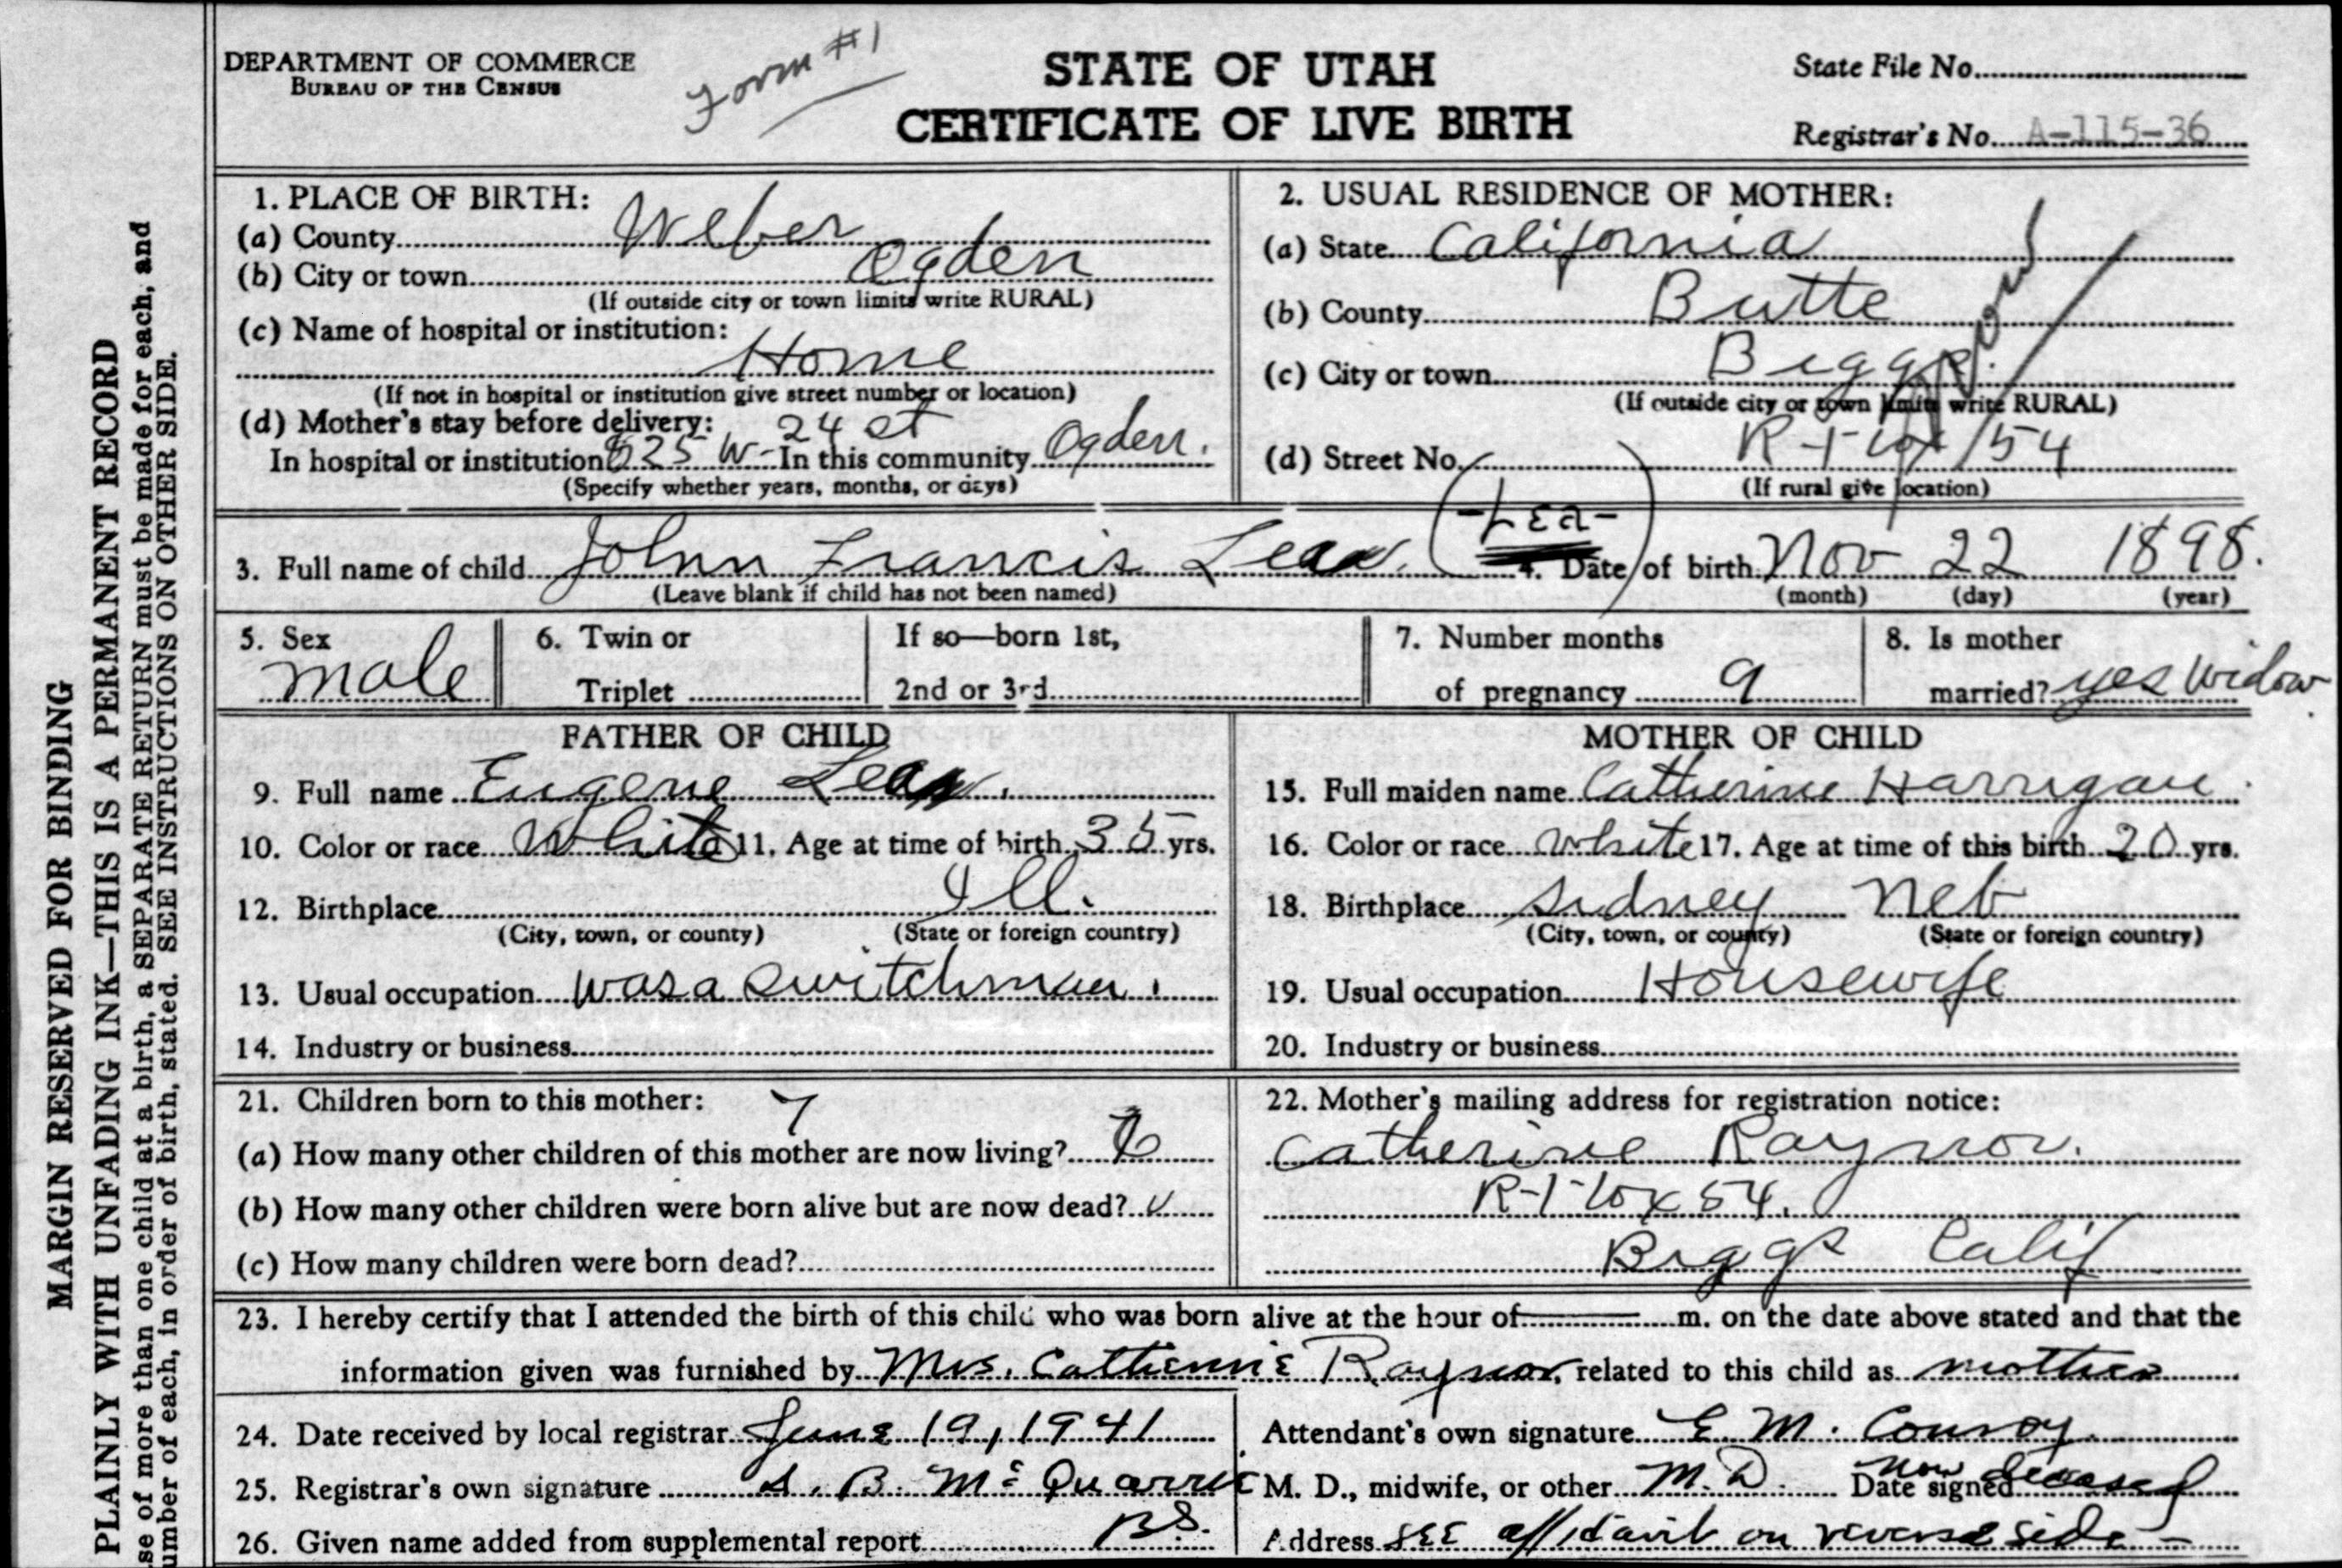 DEPARTMENT OF COMMERCE
BUREAU OF THE CENSUS
Form #1
STATE OF UTAH
CERTIFICATE OF LIVE BIRTH
State File No.
Registrar's No. A-115-36
MARGIN RESERVED FOR BINDING
PLAINLY WITH UNFADING INK—THIS IS A PERMANENT RECORD
se of more than one child at a birth, a SEPARATE RETURN must be made for each, and
umber of each, in order of birth, stated. SEE INSTRUCTIONS ON OTHER SIDE.
1. PLACE OF BIRTH:
(a) County Weber
(b) City or town Ogden
(If outside city or town limits write RURAL)
(c) Name of hospital or institution:
Home
(If not in hospital or institution give street number or location)
(d) Mother's stay before delivery: 24 st
In hospital or institution 525 W- In this community Ogden.
(Specify whether years, months, or days)
2. USUAL RESIDENCE OF MOTHER:
(a) State California
(b) County Butte
(c) City or town Biggs
now
(If outside city or town limits write RURAL)
(d) Street No. R-1- 154
(If rural give location)
3. Full name of child John Francis Lea (-Lea-) 4. Date of birth Nov 22 1898.
(Leave blank if child has not been named) (month) (day) (year)
5. Sex male
6. Twin or Triplet
If so—born 1st, 2nd or 3rd
7. Number months of pregnancy 9
8. Is mother married? yes Widow
FATHER OF CHILD
9. Full name Eugene Lea
10. Color or race White 11. Age at time of birth 35 yrs.
12. Birthplace Ill.
(City, town, or county) (State or foreign country)
13. Usual occupation was a switchman.
14. Industry or business
MOTHER OF CHILD
15. Full maiden name Catherine Harrigan
16. Color or race white 17. Age at time of this birth 20 yrs.
18. Birthplace Sidney Neb
(City, town, or county) (State or foreign country)
19. Usual occupation Housewife
20. Industry or business
21. Children born to this mother: 7
(a) How many other children of this mother are now living?
(b) How many other children were born alive but are now dead?
(c) How many children were born dead?
22. Mother's mailing address for registration notice:
Catherine Raynor.
R-1-Box 54.
Biggs Calif
23. I hereby certify that I attended the birth of this child who was born alive at the hour of m. on the date above stated and that the
information given was furnished by Mrs. Catherine Raynor, related to this child as mother
24. Date received by local registrar June 19, 1941
25. Registrar's own signature S. B. McQuarrie
26. Given name added from supplemental report BS.
Attendant's own signature E. M. Conroy
M. D., midwife, or other M.D. Date signed now deceased
Address SEE affidavit on reverse side-